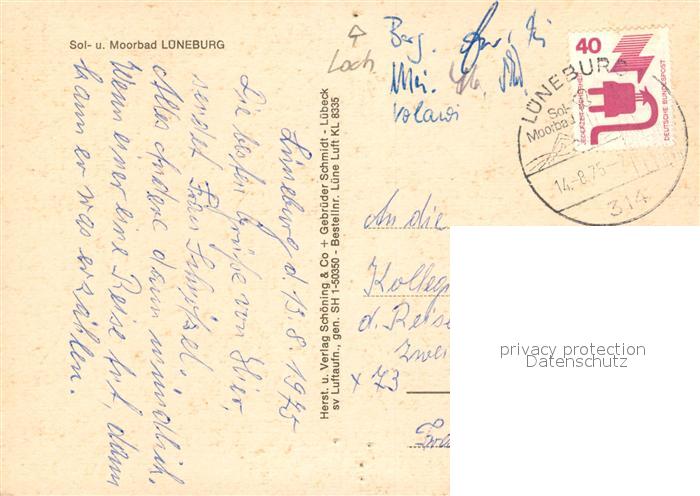 Sol- u. Moorbad LÜNEBURG
Loch
Lüneburg d. 13.8.1975
Die besten Grüße von hier,
sendet Frau
Alles Andere dann mündlich.
Wenn einer eine Reise tut, dann
kann er was erzählen.
Herst. u. Verlag Schöning & Co + Gebrüder Schmidt - Lübeck
sv Luftaufn., gen. SH 1-50350 - Bestellnr. Lüne Luft KL 8335
40
DEUTSCHE BUNDESPOST
LÜNEBURG
Sol-
Moorbad
14.-8.75
314
An die
Kolleg
d. Reise
x 73
privacy protection
Datenschutz